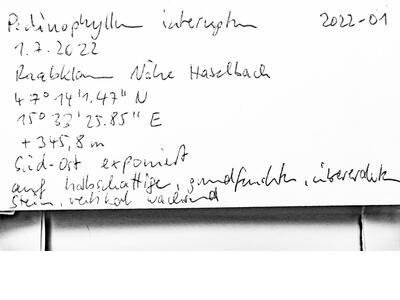 Pedinophyllum interruptum 2022-01
1.7.2022
Raabklamm Nähe Haselbach
47° 14'1.47" N
15° 33'25.85" E
+345,8 m
Süd-Ost exponiert
auf halbschattigem, grundfeuchten, übererdeten
Stein, vertikal wachsend